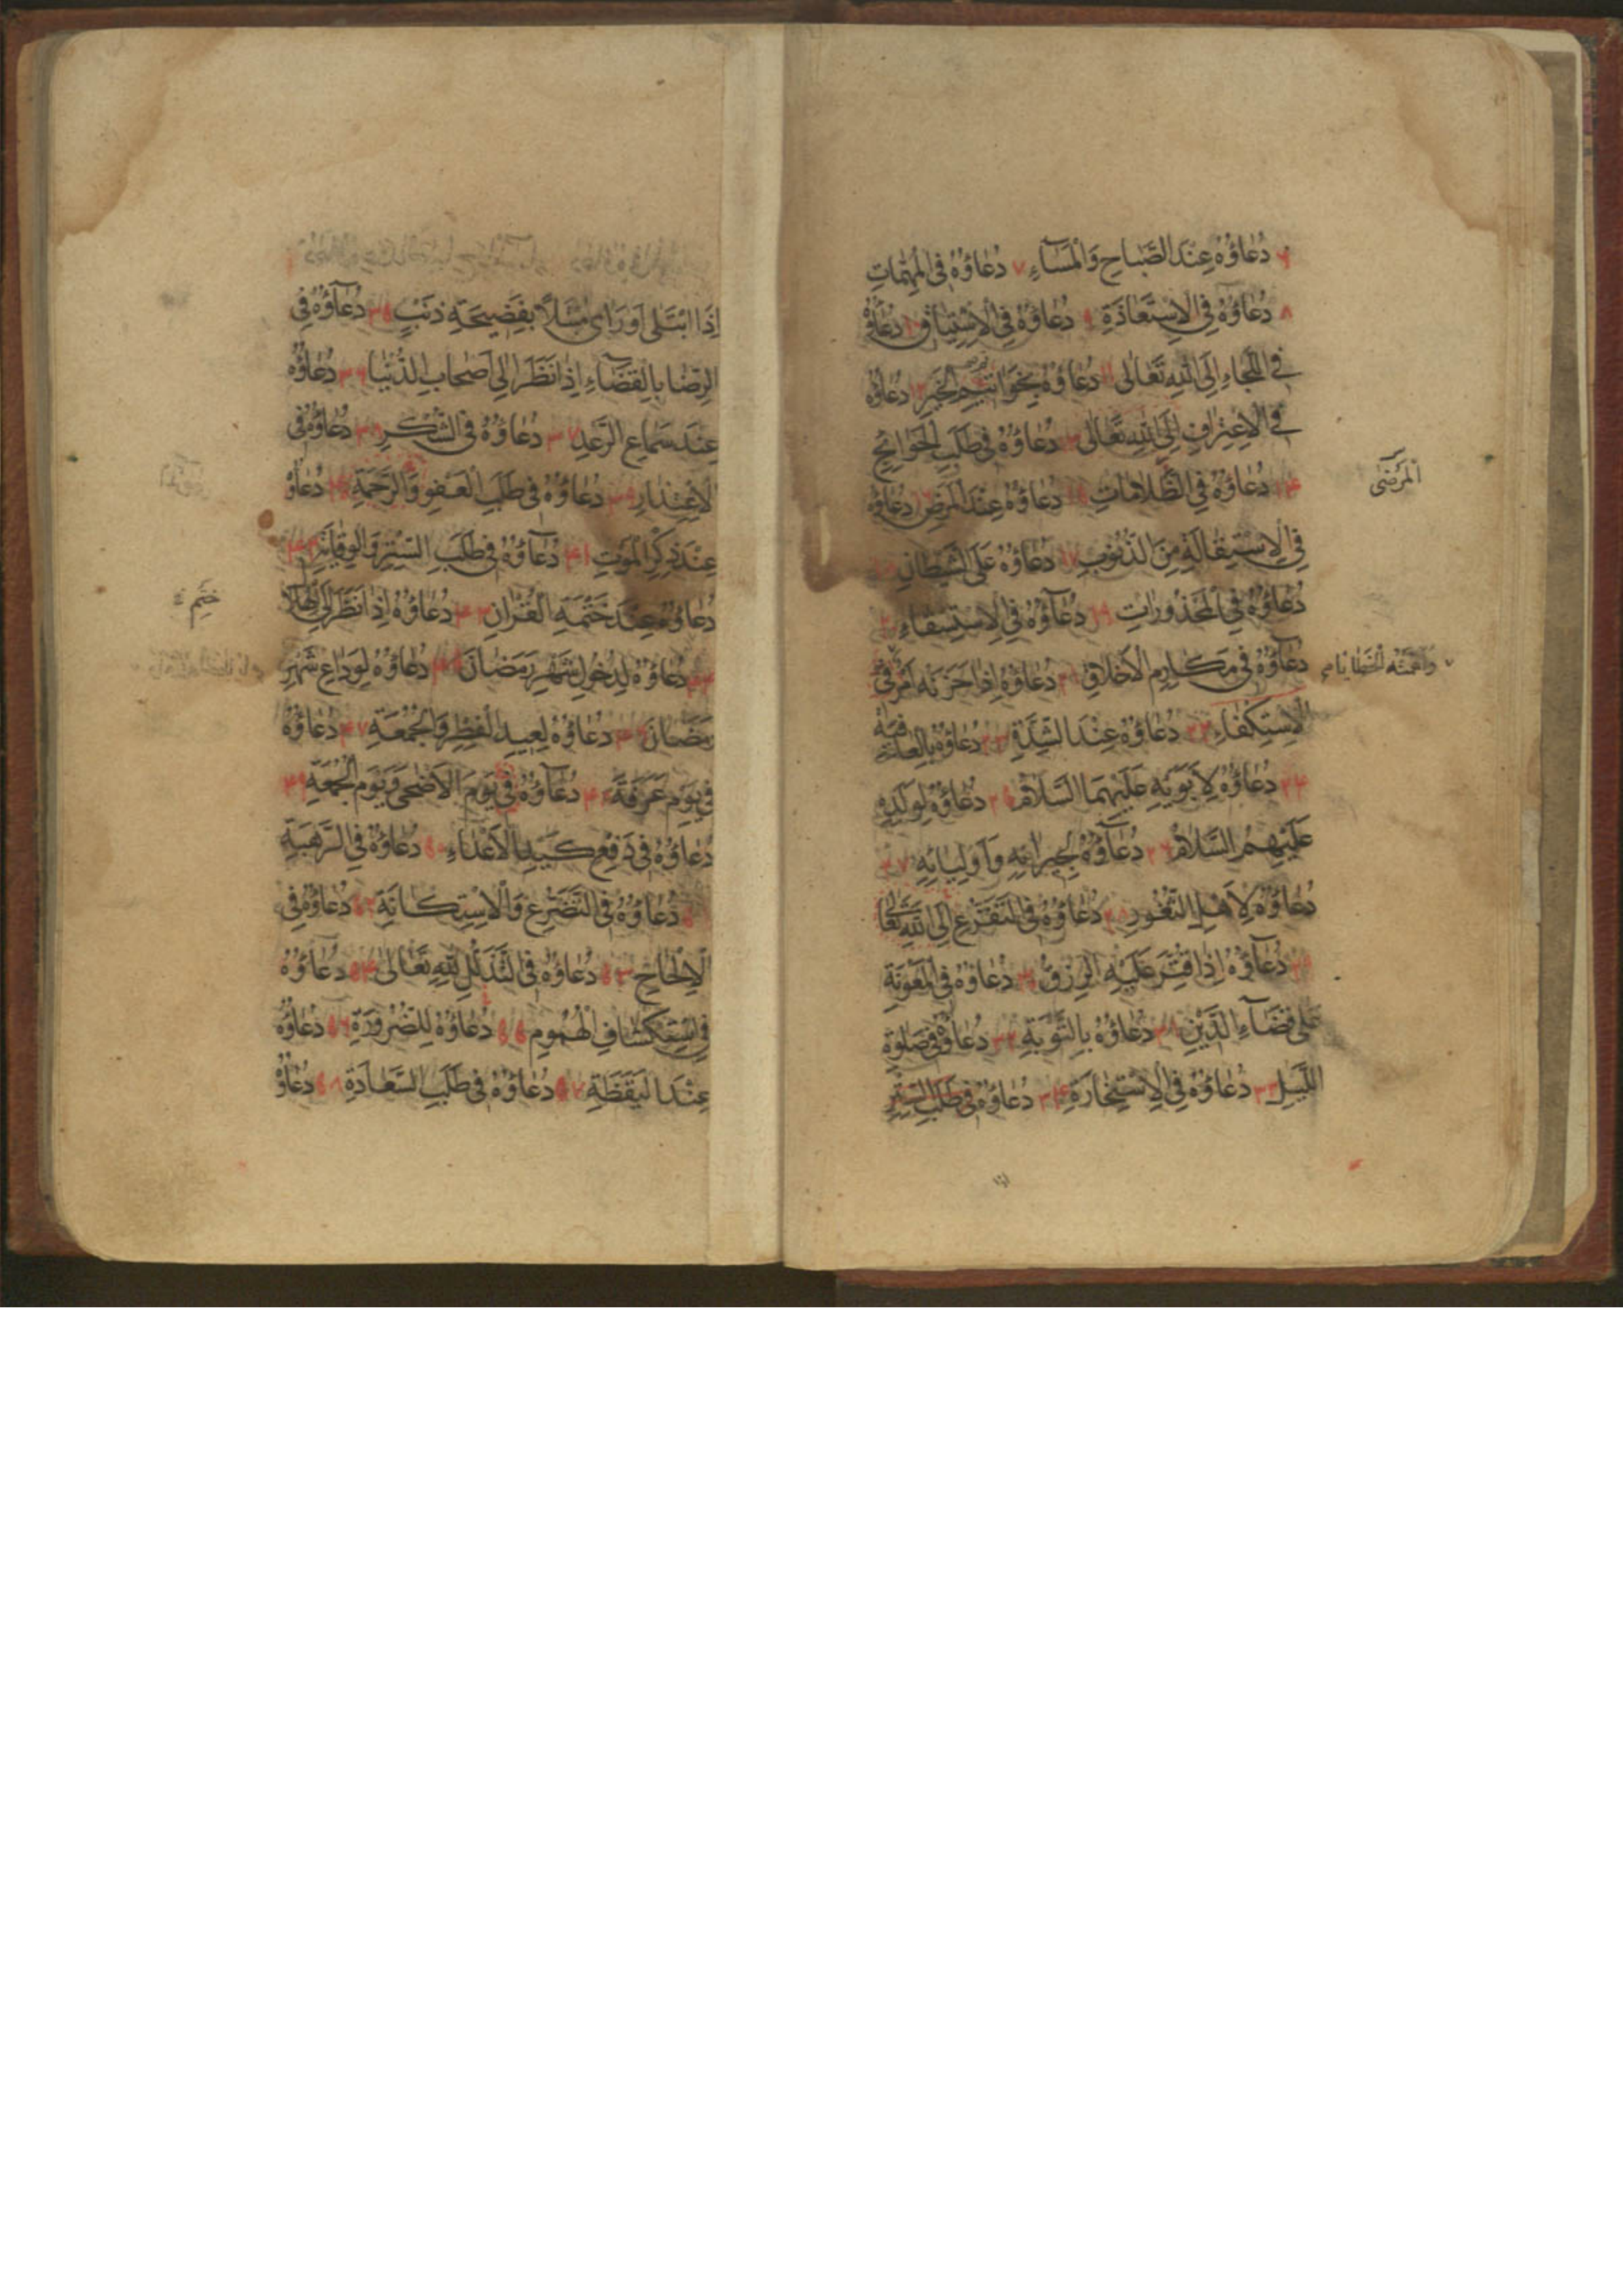 ۶ دُعَاؤُهُ عِنْدَ الصَّبَاحِ وَالْمَسَاءِ ۷ دُعَاؤُهُ فِي الْمُهِمَّاتِ
۸ دُعَاؤُهُ فِي الْاِسْتِعَاذَةِ ۹ دُعَاؤُهُ فِي الْاِشْتِيَاقِ ۱۰ دُعَاؤُهُ
فِي اللَّجَاءِ اِلَى اللهِ تَعَالَى ۱۱ دُعَاؤُهُ بِخَوَاتِيمِ الْخَيْرِ ۱۲ دُعَاؤُهُ
فِي الْاِعْتِرَافِ اِلَى اللهِ تَعَالَى ۱۳ دُعَاؤُهُ فِي طَلَبِ الْحَوَائِجِ
۱۴ دُعَاؤُهُ فِي الظُّلَامَاتِ ۱۵ دُعَاؤُهُ عِنْدَ الْمَرَضِ ۱۶ دُعَاؤُهُ
الْمَرْضَى
فِي الْاِسْتِقَالَةِ مِنَ الذُّنُوبِ ۱۷ دُعَاؤُهُ عَلَى الشَّيْطَانِ ۱۸
دُعَاؤُهُ فِي الْمَحْذُورَاتِ ۱۹ دُعَاؤُهُ فِي الْاِسْتِسْقَاءِ ۲۰
دُعَاؤُهُ فِي مَكَارِمِ الْاَخْلَاقِ ۲۱ دُعَاؤُهُ اِذَا حَزَنَهُ اَمْرٌ فِي
وَاَهَمَّتْهُ الْخَطَايَا
الْاِسْتِكْفَاءِ ۲۲ دُعَاؤُهُ عِنْدَ الشِّدَّةِ ۲۳ دُعَاؤُهُ بِالْعَافِيَةِ
۲۴ دُعَاؤُهُ لِاَبَوَيْهِ عَلَيْهِمَا السَّلَامُ ۲۵ دُعَاؤُهُ لِوَلَدِهِ
عَلَيْهِمُ السَّلَامُ ۲۶ دُعَاؤُهُ لِجِيرَانِهِ وَاَوْلِيَائِهِ ۲۷
دُعَاؤُهُ لِاَهْلِ الثُّغُورِ ۲۸ دُعَاؤُهُ فِي التَّفَزُّعِ اِلَى اللهِ تَعَالَى
۲۹ دُعَاؤُهُ اِذَا قُتِّرَ عَلَيْهِ الرِّزْقُ ۳۰ دُعَاؤُهُ فِي الْمَعُونَةِ
عَلَى قَضَاءِ الدَّيْنِ ۳۱ دُعَاؤُهُ بِالتَّوْبَةِ ۳۲ دُعَاؤُهُ فِي صَلٰوةِ
اللَّيْلِ ۳۳ دُعَاؤُهُ فِي الْاِسْتِخَارَةِ ۳۴ دُعَاؤُهُ فِي طَلَبِ السِّتْرِ
اِذَا ابْتَلَى اَوْ رَاى مُبْتَلًا بِفَضِيحَةِ ذَنْبٍ ۳۵ دُعَاؤُهُ فِي
الرِّضَا بِالْقَضَاءِ اِذَا نَظَرَ اِلَى اَصْحَابِ الدُّنْيَا ۳۶ دُعَاؤُهُ
عِنْدَ سَمَاعِ الرَّعْدِ ۳۷ دُعَاؤُهُ فِي الشُّكْرِ ۳۸ دُعَاؤُهُ فِي
الْاِعْتِذَارِ ۳۹ دُعَاؤُهُ فِي طَلَبِ الْعَفْوِ وَالرَّحْمَةِ ۴۰ دُعَاؤُهُ
عِنْدَ ذِكْرِ الْمَوْتِ ۴۱ دُعَاؤُهُ فِي طَلَبِ السِّتْرِ وَالْوِقَايَةِ ۴۲
دُعَاؤُهُ عِنْدَ خَتْمَةِ الْقُرْاٰنِ ۴۳ دُعَاؤُهُ اِذَا نَظَرَ اِلَى الْهِلَالِ
خَتْمِ
۴۴ دُعَاؤُهُ لِدُخُولِ شَهْرِ رَمَضَانَ ۴۵ دُعَاؤُهُ لِوَدَاعِ شَهْرِ
رَمَضَانَ ۴۶ دُعَاؤُهُ لِعِيدِ الْفِطْرِ وَالْجُمُعَةِ ۴۷ دُعَاؤُهُ
فِي يَوْمِ عَرَفَةَ ۴۸ دُعَاؤُهُ فِي يَوْمِ الْاَضْحَى وَيَوْمِ الْجُمُعَةِ ۴۹
دُعَاؤُهُ فِي دَفْعِ كَيْدِ الْاَعْدَاءِ ۵۰ دُعَاؤُهُ فِي الرَّهْبَةِ
۵۱ دُعَاؤُهُ فِي التَّضَرُّعِ وَالْاِسْتِكَانَةِ ۵۲ دُعَاؤُهُ فِي
الْاِلْحَاحِ ۵۳ دُعَاؤُهُ فِي التَّذَلُّلِ لِلّٰهِ تَعَالَى ۵۴ دُعَاؤُهُ
فِي اسْتِكْشَافِ الْهُمُومِ ۵۵ دُعَاؤُهُ لِلضَّرُورَةِ ۵۶ دُعَاؤُهُ
عِنْدَ الْيَقَظَةِ ۵۷ دُعَاؤُهُ فِي طَلَبِ السَّعَادَةِ ۵۸ دُعَاؤُهُ